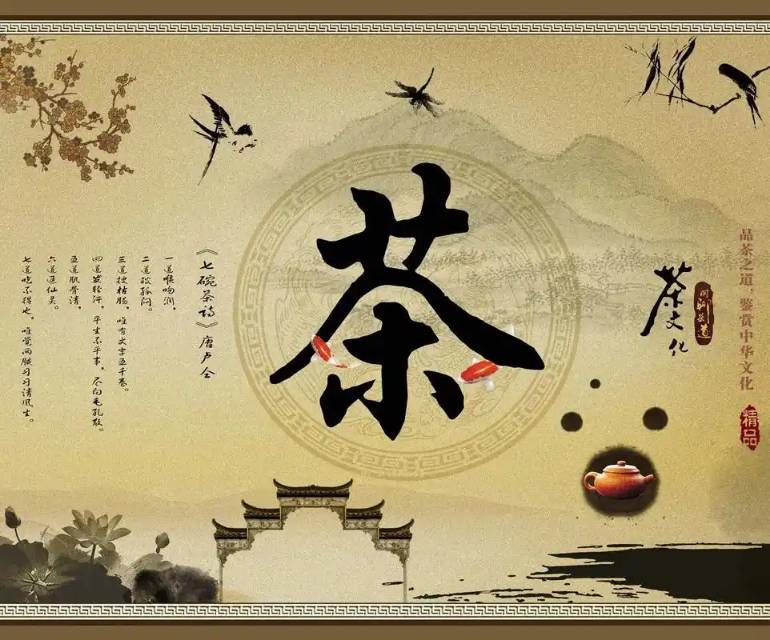 品茶之道，鉴赏中华文化
精品
茶文化
茶道
茶
《七碗茶诗》唐卢仝
一道喉吻润，
二道破孤闷。
三道搜枯肠，唯有文字五千卷。
四道发轻汗，平生不平事，尽向毛孔散。
五道肌骨清，
六道通仙灵。
七道吃不得也，唯觉两腋习习清风生。